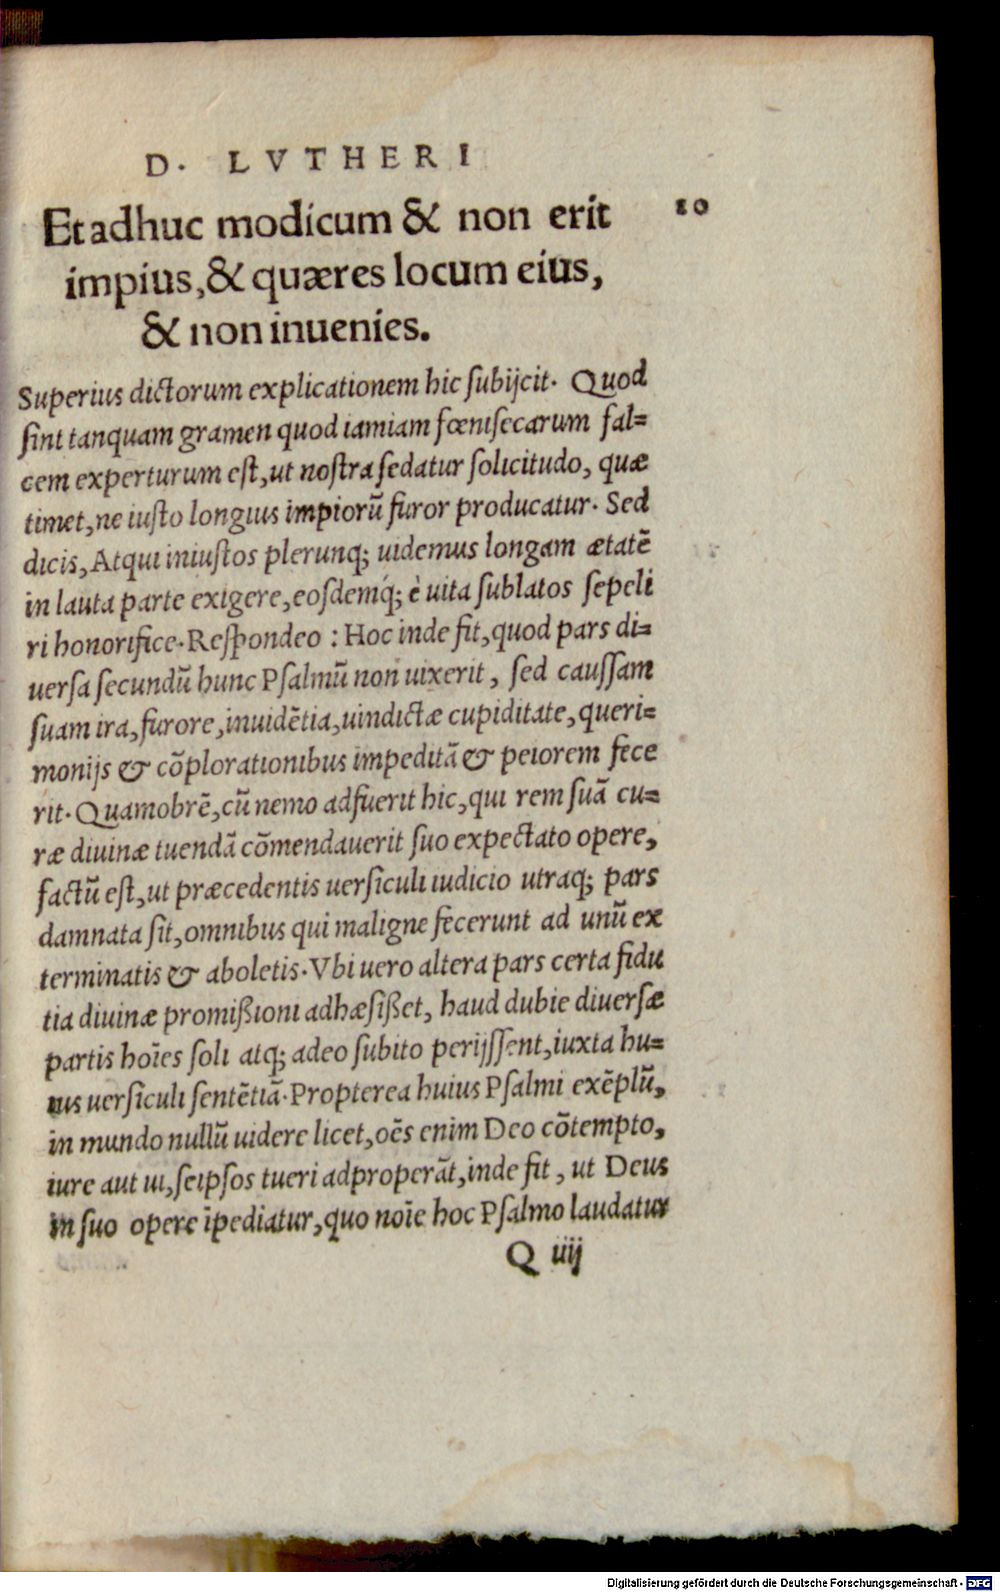 D. LVTHERI
Et adhuc modicum & non erit 10
impius, & quæres locum eius,
& non inuenies.
Superius dictorum explicationem hic subijcit. Quod
sint tanquam gramen quod iamiam fœnisecarum fal=
cem experturum est, ut nostra sedatur solicitudo, quæ
timet, ne iusto longius impiorũ furor producatur. Sed
dicis, Atqui iniustos plerunq; uidemus longam ætatẽ
in lauta parte exigere, eosdemq́; è uita sublatos sepeli
ri honorifice. Respondeo : Hoc inde fit, quod pars di=
uersa secundũ hunc Psalmũ non uixerit, sed caussam
suam ira, furore, inuidẽtia, uindictæ cupiditate, queri=
monijs & cõplorationibus impeditã & peiorem fece
rit. Quamobrẽ, cũ nemo adfuerit hic, qui rem suã cu=
ræ diuinæ tuendã cõmendauerit suo expectato opere,
factũ est, ut præcedentis uersiculi iudicio utraq; pars
damnata sit, omnibus qui maligne fecerunt ad unũ ex
terminatis & aboletis. Vbi uero altera pars certa fidu
tia diuinæ promißioni adhæsißet, haud dubie diuersæ
partis hoĩes soli atq; adeo subito perijssent, iuxta hu=
ius uersiculi sentẽtiã. Propterea huius Psalmi exẽplũ,
in mundo nullũ uidere licet, oẽs enim Deo cõtempto,
iure aut ui, seipsos tueri adproperãt, inde fit, ut Deus
in suo opere ĩpediatur, quo noĩe hoc Psalmo laudatur
Q iiij
Digitalisierung gefördert durch die Deutsche Forschungsgemeinschaft - DFG